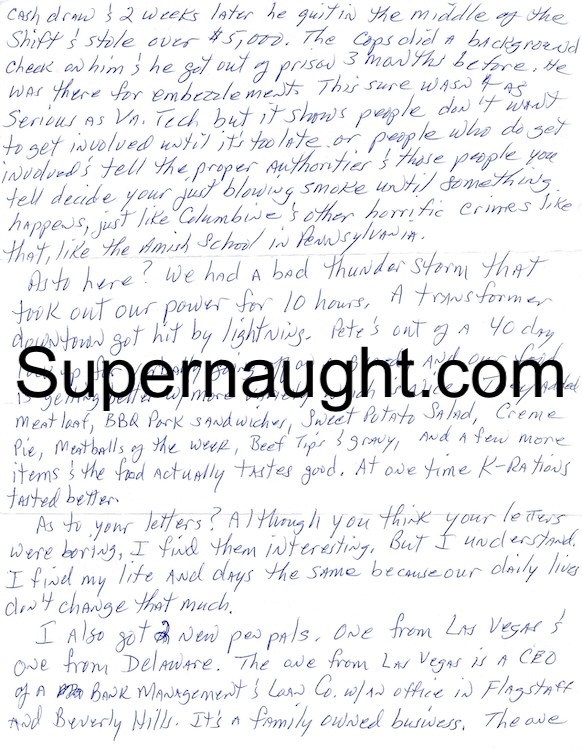 cash draw & 2 weeks later he quit in the middle of the
Shift & stole over $5,000. The cops did a background
check on him & he got out of prison 3 months before. He
was there for embezzlement. This sure wasn't as
Serious as Va. Tech but it shows people don't want
to get involved until it's too late or people who do get
involved & tell the proper authorities & those people you
tell decide your just blowing smoke until something
happens, just like Columbine & other horrific crimes like
that, like the Amish School in Pennsylvania.
As to here? We had a bad thunder storm that
took out our power for 10 hours. A transformer
downtown got hit by lightning. Pete's out of a 40 day
Supernaught.com
is getting better w/more
added
meatloaf, BBQ Pork sandwiches, Sweet Potato Salad, Creme
Pie, Meatballs of the week, Beef Tips & gravy, and a few more
items & the food actually tastes good. At one time K-Rations
tasted better.
As to your letters? Although you think your letters
were boring, I find them interesting. But I understand.
I find my life and days the same because our daily lives
don't change that much.
I also got 2 new pen pals. One from Las Vegas &
one from Delaware. The one from Las Vegas is a CEO
of a Bank Management & Loan Co. w/an office in Flagstaff
and Beverly Hills. It's a family owned business. The one